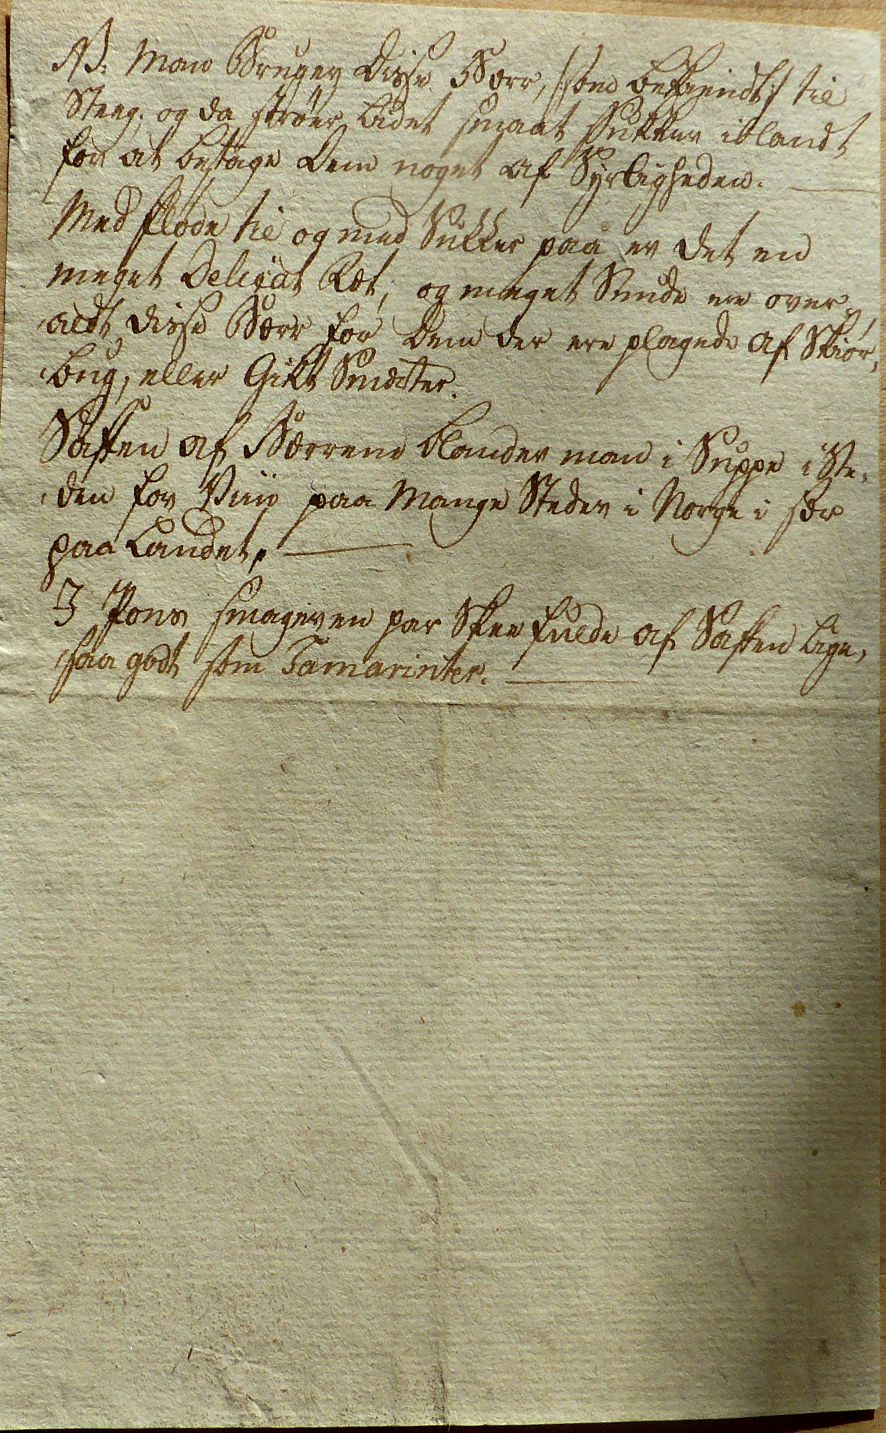 NB. Man Bruger disse Bærr, /:som bekiendt:/ til
Steeg, og da strøer lidet smaat Sukker iblandt
for at betage dem noget af Syrligheden.
Med fløde til og med Sukker paa er det en
meget Deliçat Ræt, og meget Sunde ere over,
,alt, disse Bærr for dem der ere plagede af Skiør,
,bug, eller Gikt Smerter.
Saften af Bærrene blander man i Suppe i Ste,
,den for Viin paa Mange Steder i Norge i sær
paa Landet,
I Pons smager en par Skee fulde af Saften lige,
,saa godt som Tamarinter.